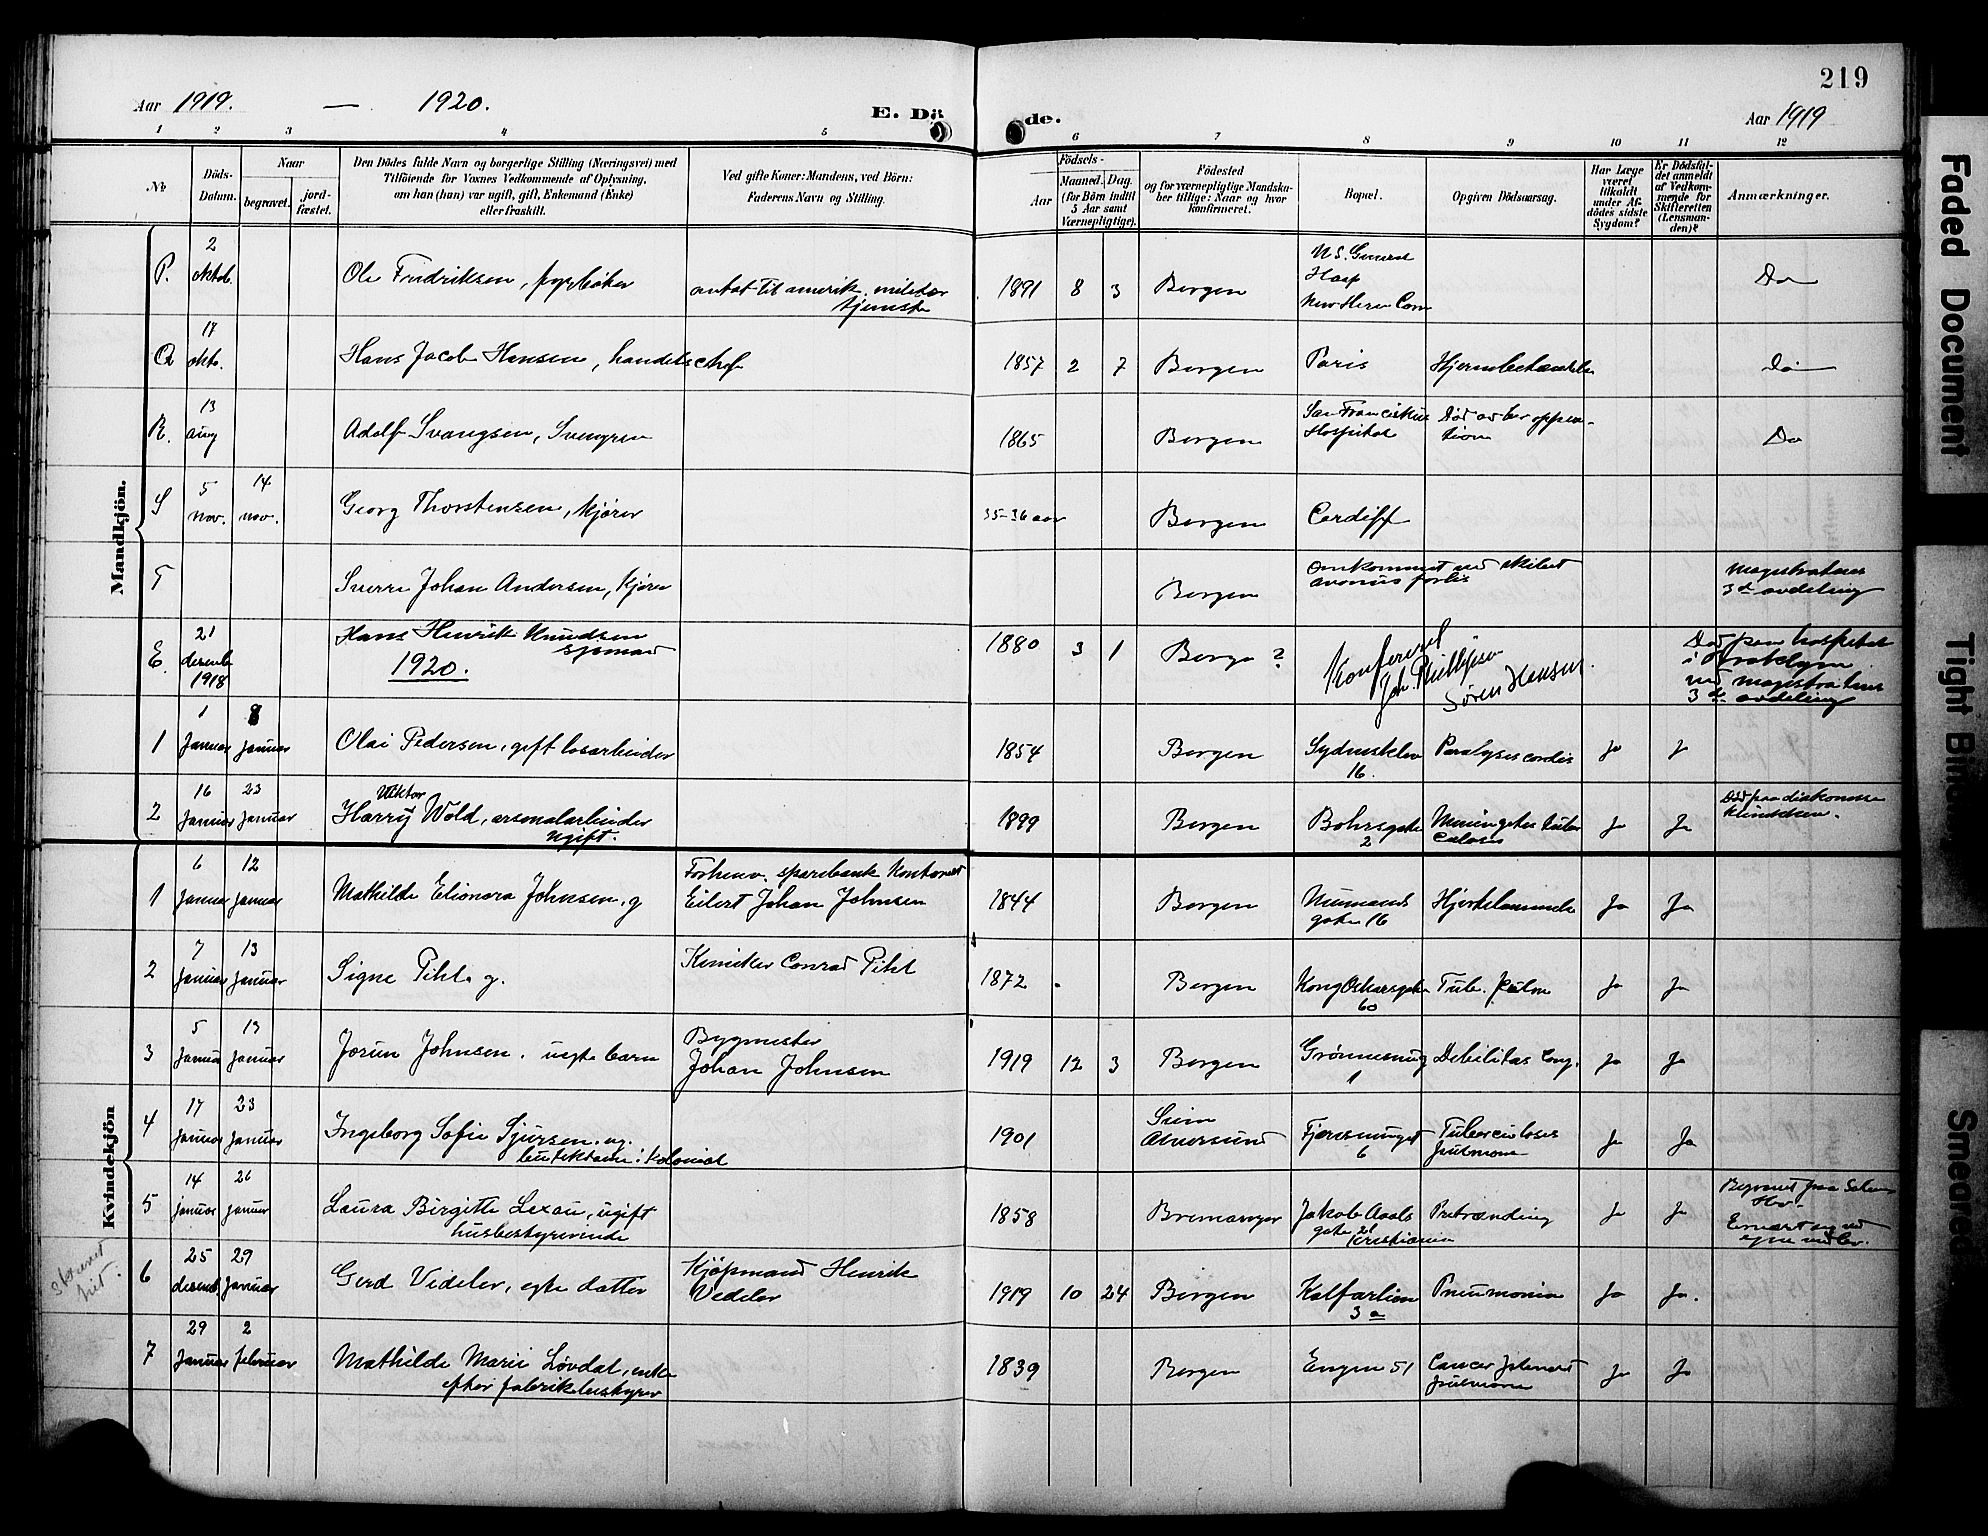 219
Aar 1919. — 1920.
E. Dö de.
Aar 1919
1 2 3 4 5 6 7 8 9 10 11 12
No
Döds-
Datum.
Naar
begravet.
jord-
fæstet.
Den Dödes fulde Navn og borgerlige Stilling (Næringsvei) med
Tilföiende for Voxnes Vedkommende af Oplysning,
om han (hun) var ugift, gift, Enkemand (Enke)
eller fraskilt.
Ved gifte Koner: Mandens, ved Börn:
Faderens Navn og Stilling.
Födsels-
Aar
Maaned. Dag
(for Börn indtil
5 Aar samt
Værnepligtige).
Födested
og for værnepligtige Mandska-
ber tillige: Naar og hvor
konfirmeret.
Bopæl.
Opgiven Dödsaarsag.
Har Læge
været
tilkaldt
under Af-
dödes sidste
Sygdom?
Er Dödsfal-
det anmeldt
af Vedkom-
mende for
Skifteretten
(Lensman-
den)?
Anmærkninger.
Mandkjön.
P. 2 oktob. Ole Fredriksen, fyrbøter antat til amerik. militær
tjeneste 1891 8 3 Bergen U.S. General
Hosp
New Haven Conn Do
Q 17 okto. Hans Jacob Hansen, handelschef 1857 2 7 Bergen Paris Do
R. 13 aug Adolf Svangsen, Svengren 1865 Bergen San Franciskus
Hospital Død av opera-
tion Do
S 5 nov. 14 nov. Georg Thorstensen, kjører 35-36 aar Bergen Cardiff
T Sverre Johan Andersen, kjører Bergen Omkommet ved skibet
Magistratens
3de avdeling
E. 21 desemb 1918 Hans Henrik Knudsen
sjømand 1880 3 1 Berge ? Konfereret
Joh. Phillipsen
Søren Hansen
Død paa hospital
i Brooklyn
ved magistratens
3de avdeling
1920.
1 1 Januar 8 januar Olai Pedersen, gift losarbeider 1854 Bergen Sydnesklev
16. Paralysis cordis Ja J
2 16 Januar 23 Januar Harry Viktor Wold, arsenalarbeider
ugift. 1899 Bergen Bohrsgate
2 Meningites tuber
culosis Ja Ja Død paa diakonisse
klinikken.
Kvindekjön
1 6 Januar 12 Januar Mathilde Elionora Johnsen, g Forhenv. sparebank kontorist
Eilert Johan Johnsen 1844 Bergen Neumands
gate 16 Hjertelammelse Ja Ja
2 7 Januar 13 Januar Signe Pihl. g. Kemiker Conrad Pihl 1872 Bergen Kong Oskarsgate
60 Tub. pulm Ja Ja
3 5 Januar 13 Januar Jorun Johnsen. uegte barn Bygmester
Johan Johnsen 1919 12 3 Bergen Grønnesmug
1 Debilitas cong. Ja Ja
4 17 Januar 23 Januar Ingeborg Sofie Sjursen. ug.
butikdame i kolonial 1901 Seim
Alversund Fjæresmuget
6 Tuberculoses
pulmone Ja Ja
5 14 januar 26 januar Laura Birgitte Lexau, ugift
husbestyrerinde 1858 Bremanger Jakob Aalls
gate 26
Kristiania Betænding Ja Ja Begravet paa Solheim
Ernært sig ved
egne midler.
6 25 desemb 29 Januar Gerd Vedeler, egte datter Kjøpmand Henrik
Vedeler 1919 10 24 Bergen Kalfarlien
3 a Pneumonia Ja Ja.
7 29 Januar 2 februar Mathilde Marie Løvdal, enke
efter fabrikbestyrer 1839 Bergen Engen 51 Cancer
pulmone Ja Ja
Faded Document
Tight Binding
Smeared